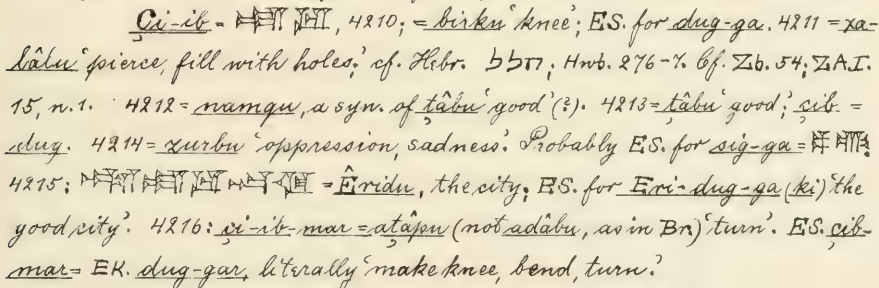 Çi-ib = 𒍢𒅁, 4210; = birku 'knee'; ES. for dug-ga. 4211 = xa-
bâbu 'pierce, fill with holes,' cf. Hebr. חבב; Hwb. 276-7. Cf. Zb. 54; ZA. I.
15, n. 1. 4212 = namqu, a syn. of ṭâbu 'good' (?). 4213 = ṭâbu 'good'; çib =
dug. 4214 = xurbu 'oppression, sadness.' Probably ES. for sig-ga =
4215; = Êridu, the city; ES. for Eri-dug-ga (ki) 'the
good city'. 4216: çi-ib-mar = aṭâpu (not adâbu, as in Br.) 'turn'. ES. çib-
mar = EK. dug-gar, literally 'make knee, bend, turn.'